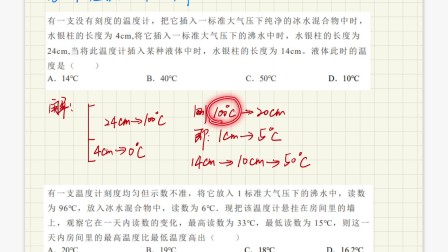 有一支没有刻度的温度计，把它插入一标准大气压下纯净的冰水混合物中时，
水银柱的长度为 4cm,将它插入一标准大气压下的沸水中时，水银柱的长度为
24cm,当将此温度计插入某种液体中时，水银柱的长度为 14cm。液体此时的温
度是（ ）
A. 14℃ B. 40℃ C. 50℃ D. 10℃
解：
24cm→100℃
4cm→0℃
100℃→20cm
即：1cm→5℃
14cm→10cm→50℃
有一支温度计刻度均匀但示数不准，将它放入 1 标准大气压下的沸水中，读数
为 96℃，放入冰水混合物中，读数为 6℃。现把该温度计悬挂在房间里的墙
上，观察它在一天内读数的变化，最高读数为 33℃，最低读数为 15℃，则这一
天内房间里的最高温度比最低温度高出（ ）
A. 20℃ B. 19℃ C. 18℃ D. 16.2℃